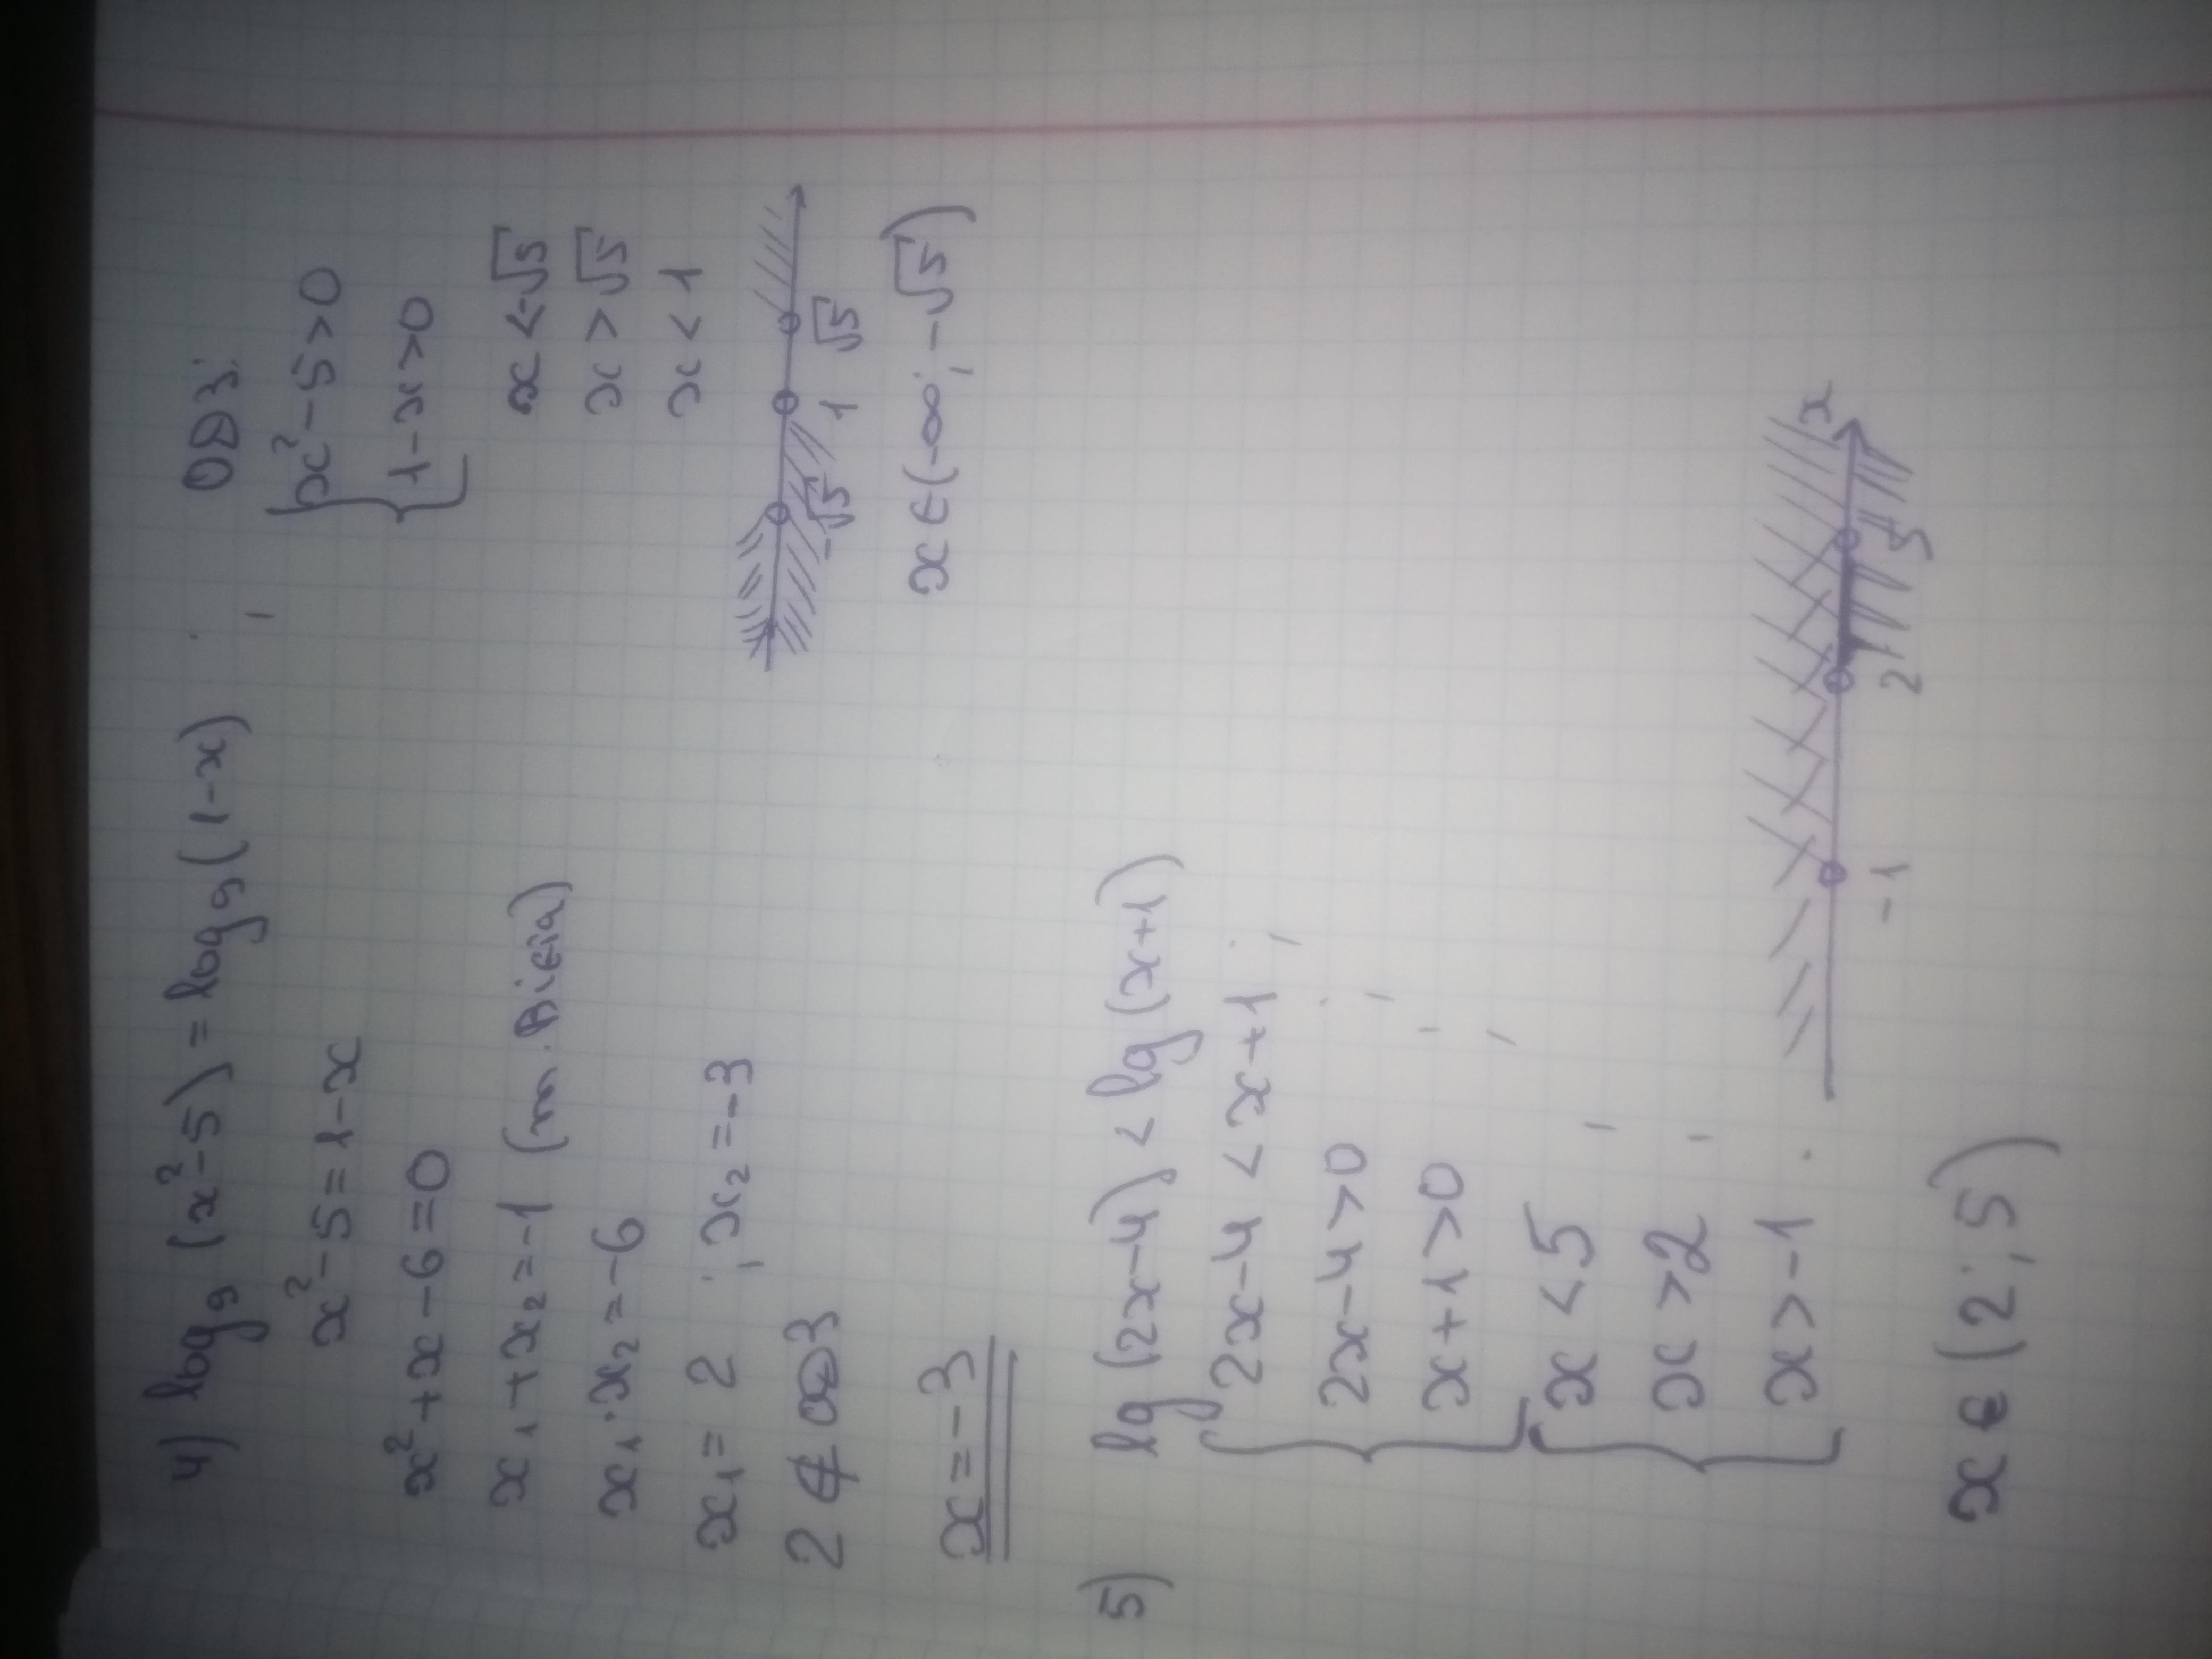 4) log₉(x²-5) = log₉(1-x)
x²-5 = 1-x
x²+x-6=0
x₁+x₂=-1 (т. Вієта)
x₁·x₂=-6
x₁= 2 ; x₂=-3
2 ∉ ОДЗ
x=-3
ОДЗ:
{ x²-5>0
1-x>0
x<-√5
x>√5
x<1
-√5 1 √5
x∈(-∞;-√5)
5) lg(2x-4) < lg(x+1)
{ 2x-4 < x+1 ;
2x-4>0 ;
x+1>0 ;
{ x<5
x>2
x>-1 .
-1 2 5 x
x∈(2;5)